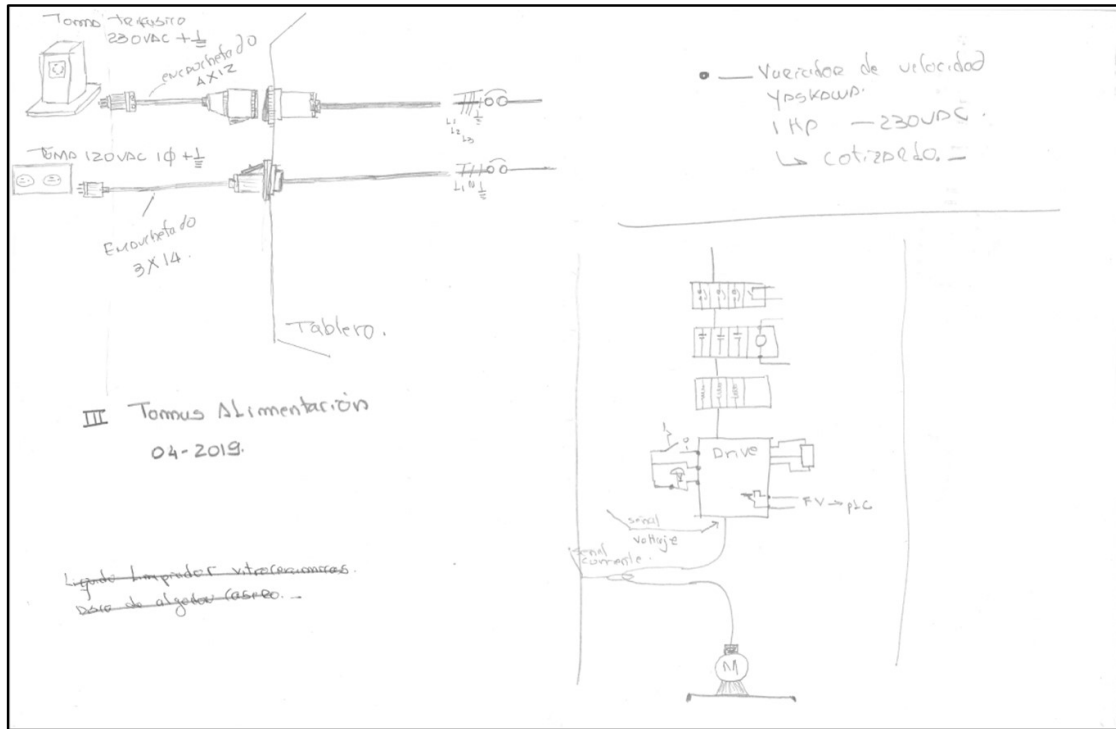 Toma trifásico
230VAC +
encauchetado
4X12
L1
L2
L3
Toma 120VAC 1Φ +
L1 N
Encauchetado
3X14.
Tablero.
III Tomas Alimentación
04-2019.
Liquido Limpiador vitroceramicas.
de algodon
• — Variador de velocidad
YASKAWA.
1 HP — 230VAC.
↳ cotizado. —
Drive
FV → PLC
señal
voltaje
señal
corriente.
M